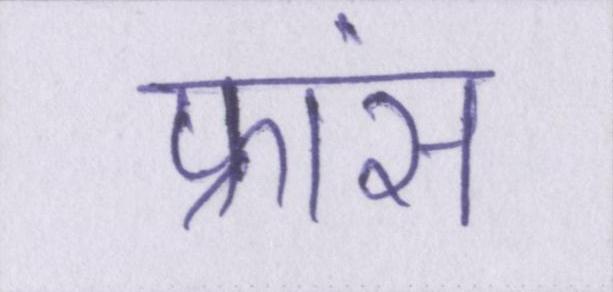 फ्रांस